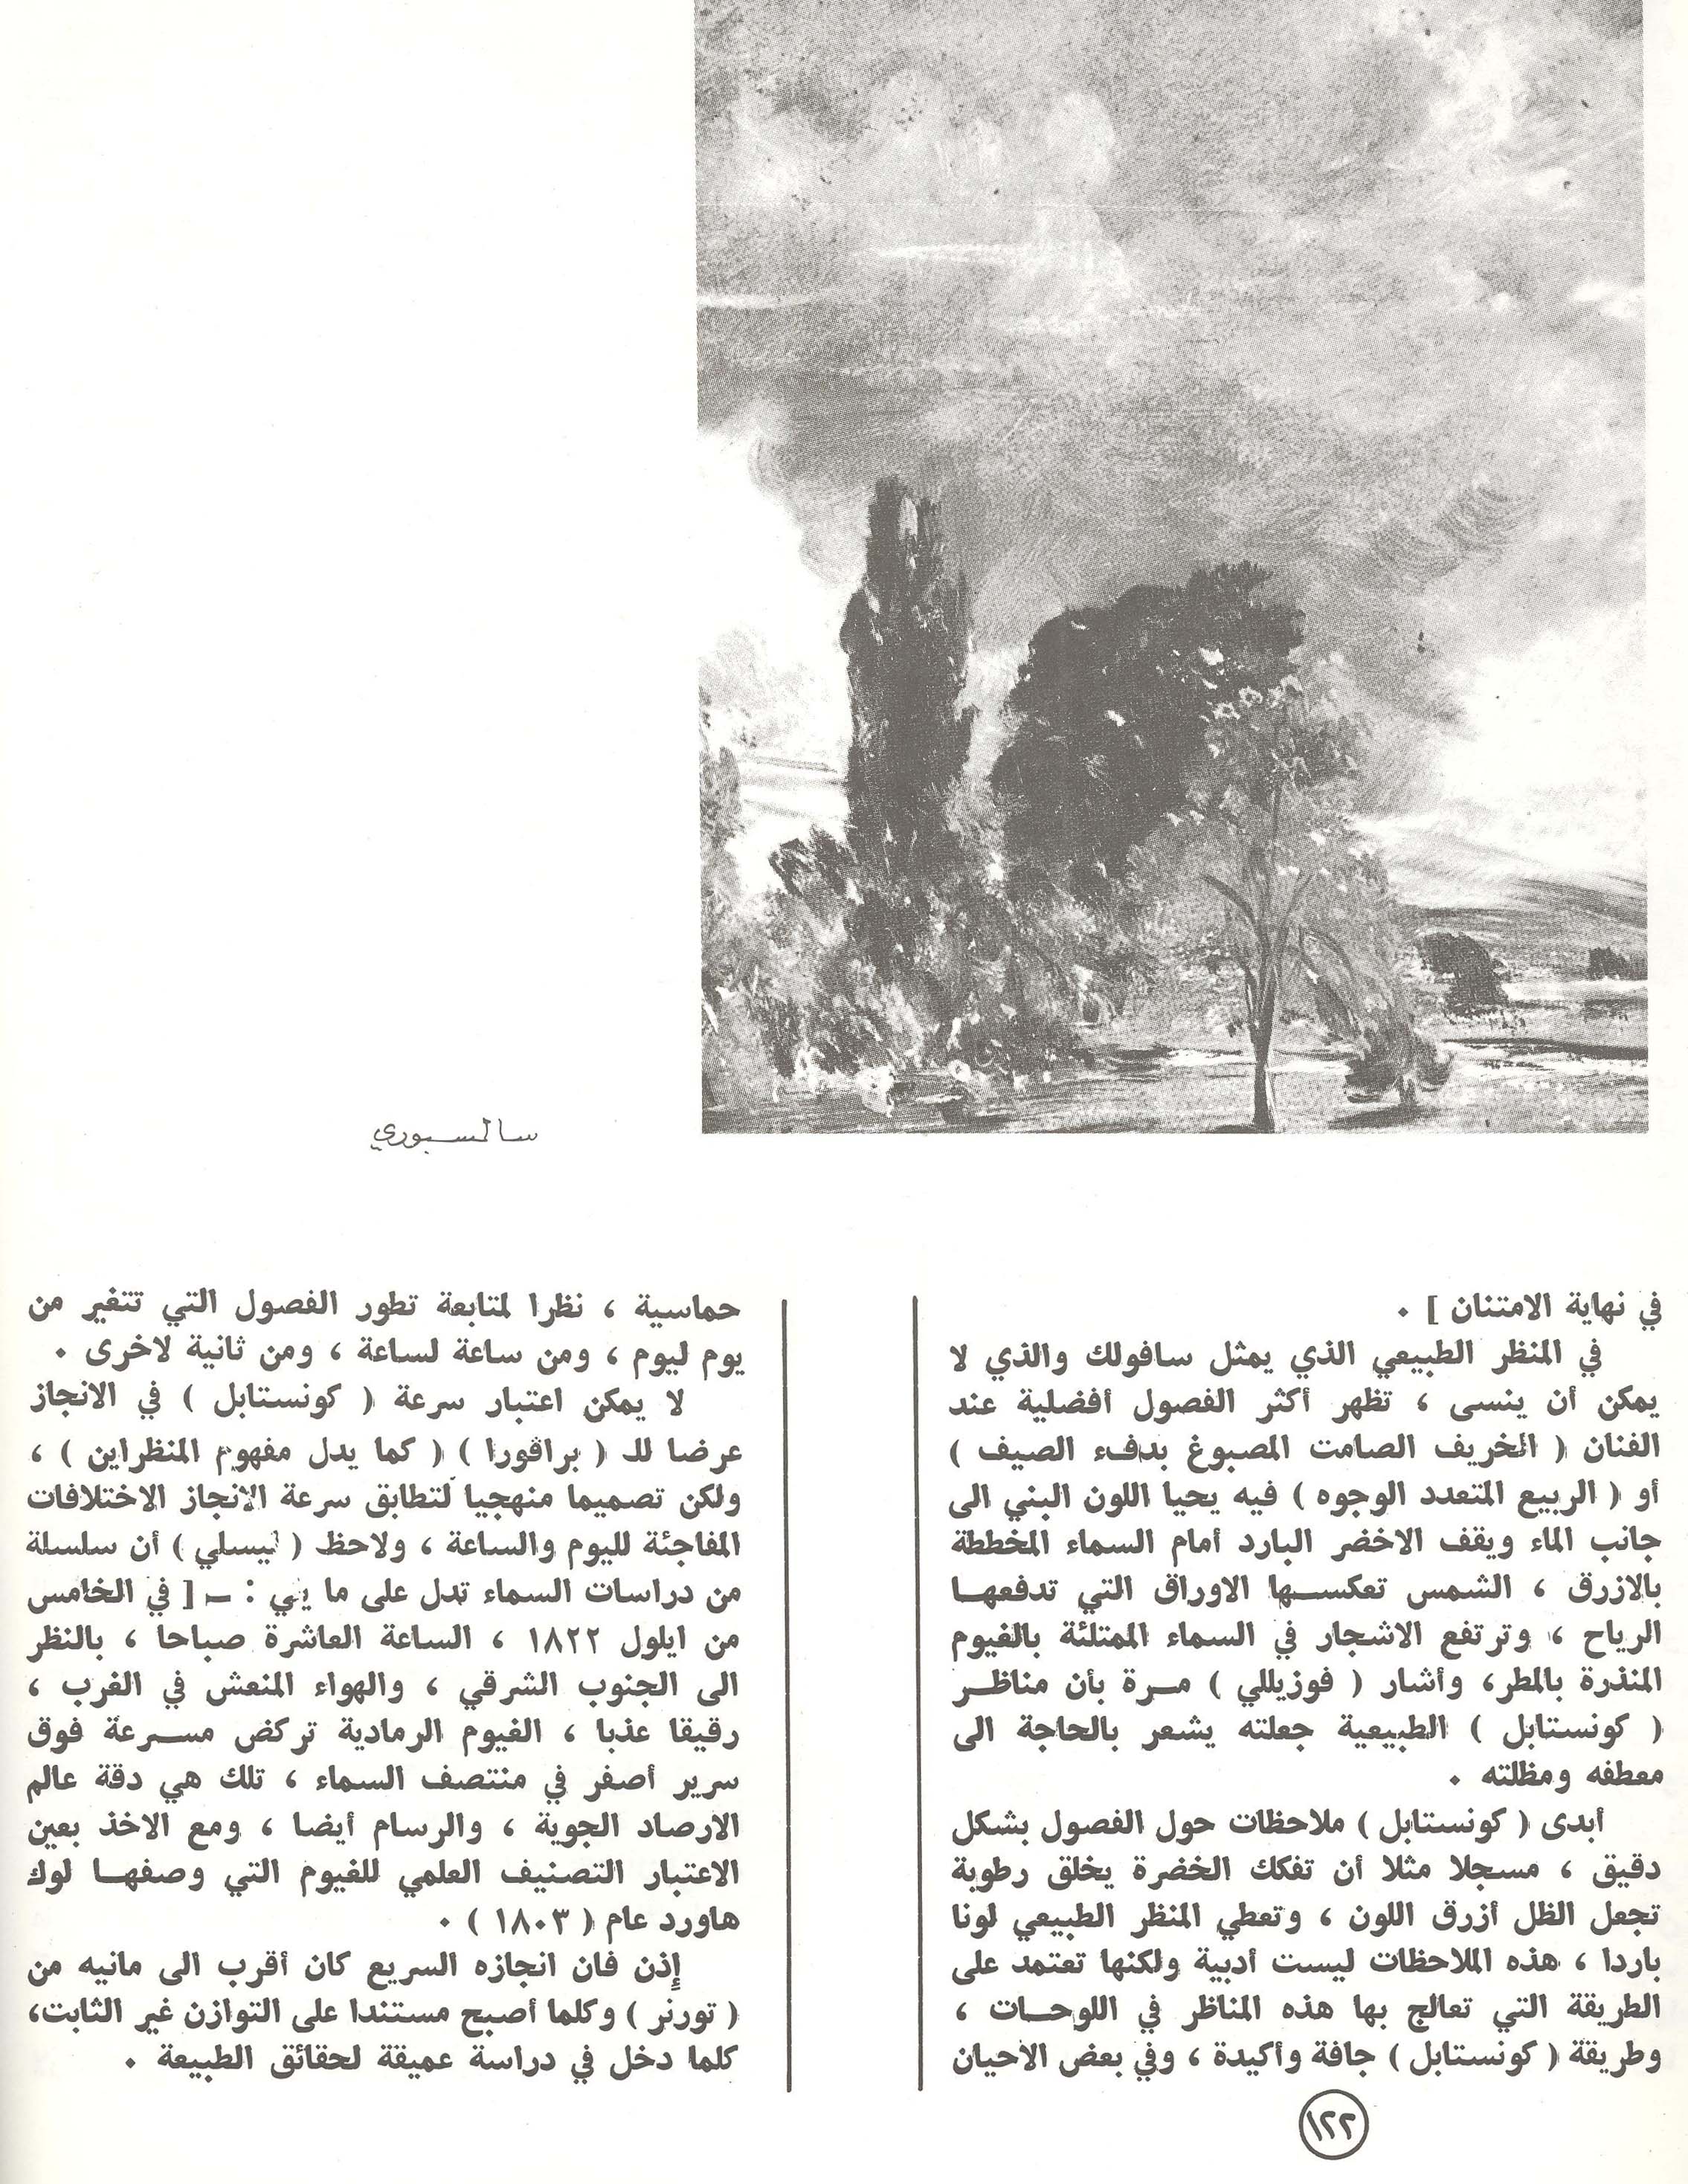 سالسبوري
في نهاية الامتنان ] .
في المنظر الطبيعي الذي يمثل سافولك والذي لا
يمكن أن ينسى ، تظهر أكثر الفصول أفضلية عند
الفنان ( الخريف الصامت المصبوغ بدفء الصيف )
أو ( الربيع المتعدد الوجوه ) فيه يحيا اللون البني الى
جانب الماء ويقف الاخضر البارد أمام السماء المخططة
بالازرق ، الشمس تعكسها الاوراق التي تدفعها
الرياح ، وترتفع الاشجار في السماء الممتلئة بالغيوم
المنذرة بالمطر، وأشار ( فوزيللي ) مرة بأن مناظر
( كونستابل ) الطبيعية جعلته يشعر بالحاجة الى
معطفه ومظلته .
أبدى ( كونستابل ) ملاحظات حول الفصول بشكل
دقيق ، مسجلا مثلا أن تفكك الخضرة يخلق رطوبة
تجعل الظل أزرق اللون ، وتعطي المنظر الطبيعي لونا
باردا ، هذه الملاحظات ليست أدبية ولكنها تعتمد على
الطريقة التي تعالج بها هذه المناظر في اللوحات ،
وطريقة ( كونستابل ) جافة وأكيدة ، وفي بعض الاحيان
حماسية ، نظرا لمتابعة تطور الفصول التي تتغير من
يوم ليوم ، ومن ساعة لساعة ، ومن ثانية لاخرى .
لا يمكن اعتبار سرعة ( كونستابل ) في الانجاز
عرضا للـ ( براڤورا ) ( كما يدل مفهوم المنظراين ) ،
ولكن تصميما منهجيا لتطابق سرعة الانجاز الاختلافات
المفاجئة لليوم والساعة ، ولاحظ ( ليسلي ) أن سلسلة
من دراسات السماء تدل على ما يلي : ـ [ في الخامس
من ايلول ١٨٢٢ ، الساعة العاشرة صباحا ، بالنظر
الى الجنوب الشرقي ، والهواء المنعش في الغرب ،
رقيقا عذبا ، الغيوم الرمادية تركض مسرعة فوق
سرير أصفر في منتصف السماء ، تلك هي دقة عالم
الارصاد الجوية ، والرسام أيضا ، ومع الاخذ بعين
الاعتبار التصنيف العلمي للغيوم التي وصفها لوك
هاورد عام ( ١٨٠٣ ) .
إذن فان انجازه السريع كان أقرب الى مانيه من
( تورنر ) وكلما أصبح مستندا على التوازن غير الثابت،
كلما دخل في دراسة عميقة لحقائق الطبيعة .
١٢٢